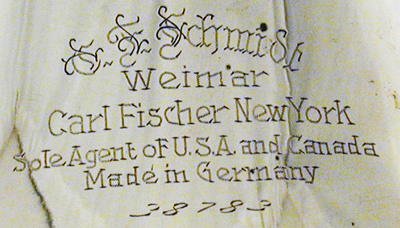 C. F. Schmidt
Weimar
Carl Fischer New York
Sole Agent of U.S.A. and Canada
Made in Germany
38783